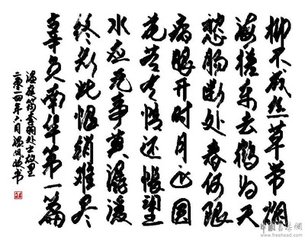 柳不成丝草带烟
海槎东去鹤归天
愁肠断处春何限
病眼开时月正圆
花若有情还怅望
水应无事莫潺湲
终知此恨销难尽
辜负南华第一篇
温庭筠李羽处士故里
二〇一四年六月